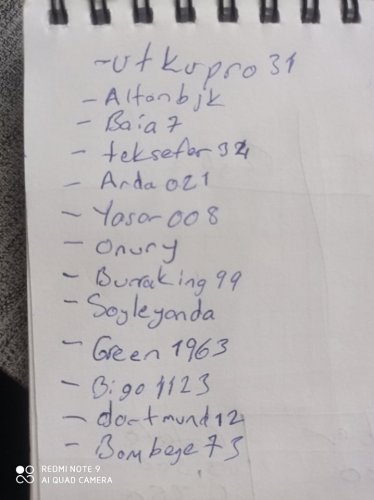 -utkupro31
- Altanbjk
- Baia7
- teksefer34
- Arda021
- Yasar008
- Onury
- Burraking99
- Soyleyanda
- Green1963
- Bigo1123
- dortmund12
- Bombege73
REDMI NOTE 9
AI QUAD CAMERA